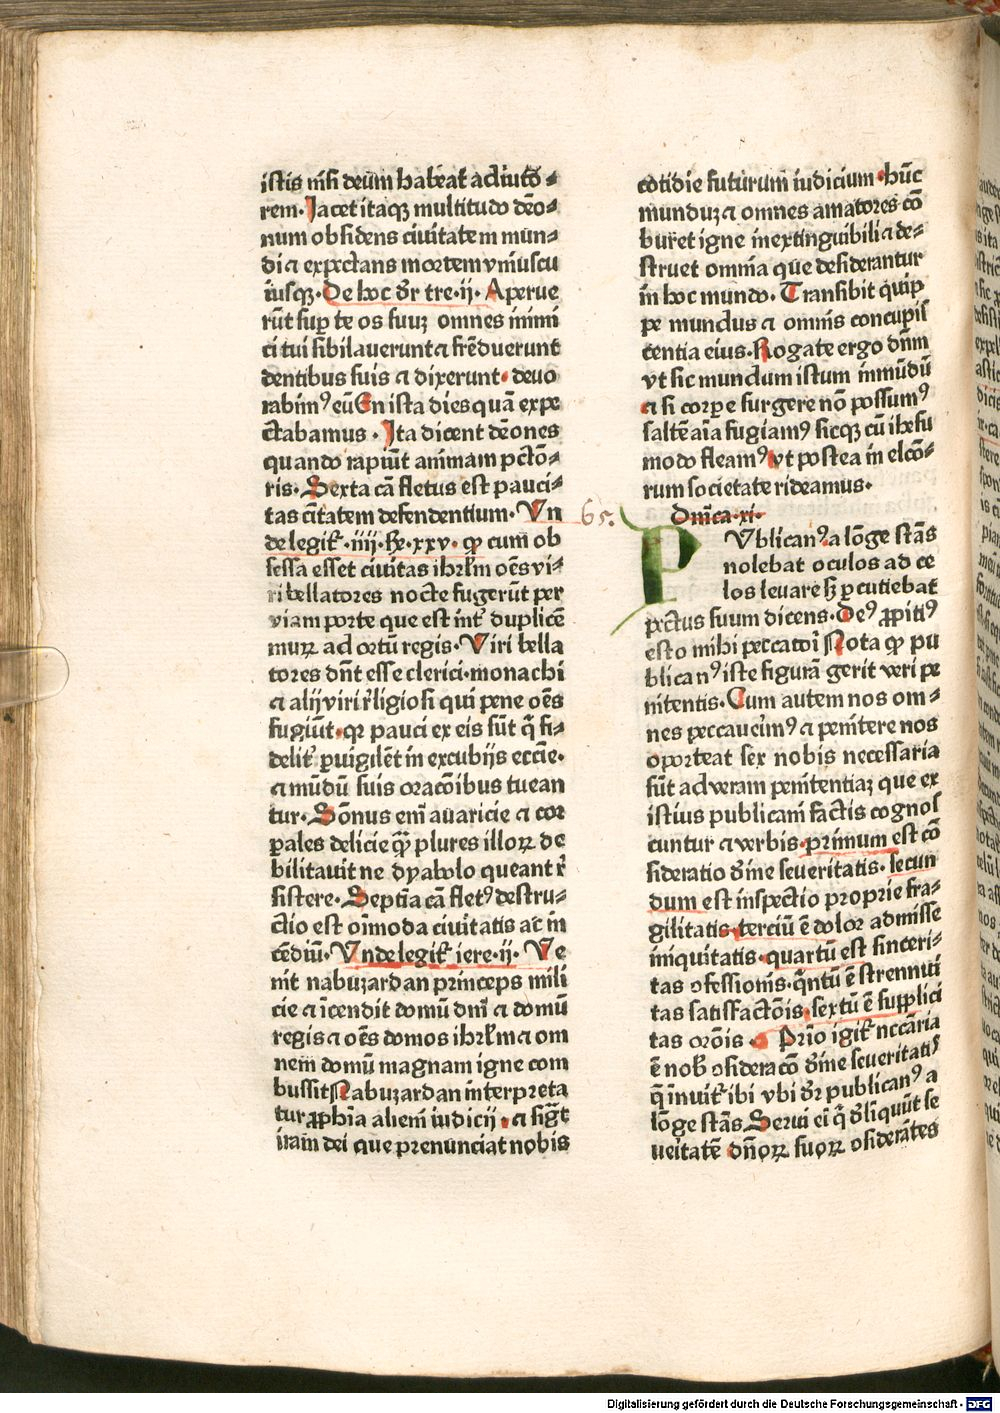 istis nisi deum habeat̉ adiuto⸗
rem. Jacet itaqꝫ multitudo deo⸗
num obsidens ciuitatem mun⸗
di ⁊ expectans mortem vniuscu
iusqꝫ. De hoc dr̄ tre.ij. Aperue
rūt sup te os suuꝫ omnes inimi
ci tui sibilauerunt ⁊ frēduerunt
dentibus suis ⁊ dixerunt. deuo
rabimꝰ eū En ista dies quā expe
ctabamus. Ita dicent dēones
quando rapiūt animam pctō⸗
ris. Sexta cā fletus est pauci⸗
tas cītatem defendentium. Vn
de legit̉ .iiij. Re. xxv. qꝙ cum ob
sessa esset ciuitas ihrl̄m oēs vi⸗
ri bellatores nocte fugerūt per
viam porte que est int̉ duplicē
murꝫ ad ortū regis. Viri bella
tores dn̄t esse clerici. monachi
⁊ alij viri r̄ligiosi qui pene oēs
fugiūt. qꝛ pauci ex eis sūt q̄ fi⸗
delit̉ ꝑuigilēt in excubijs eccīe.
⁊ mūdū suis oracōibus tuean
tur. Sōnus em̄ auaricie ⁊ cor
ꝑales delicie qꝙ plures illoꝝ de
bilitauit ne dyabolo queant r̄
sistere. Septīa cā fletꝰ destru⸗
ctio est oīmoda ciuitatis ac in
cēdiū. Vnde legit̉ iere.ij. Ve
nit nabuzardan princeps mili
cie ⁊ īcendit domū dn̄i ⁊ domū
regis ⁊ oēs domos ihrl̄m ⁊ om
nem domū magnam igne com
bussit Nabuzardan interpreta
tur ꝓphīa alieni iudicij. ⁊ sigͣt
iram dei que prenunciat nobis
cotidie futurum iudicium. hūc
munduꝫ ⁊ omnes amatores cō
buret igne inextinguibili ⁊ de⸗
struet omnia que desiderantur
in hoc mundo. Transibit quip
pe mundus ⁊ omnis concupis
centia eius. Rogate ergo dn̄m
vt sic mundum istum inmūdū
⁊ si corpe surgere nō possumꝰ
saltē aīa fugiamꝰ sicqꝫ cū ihesu
modo fleamꝰ vt postea in celō⸗
rum societate rideamus.
65.
Dn̄ica .xi.
PVblicanꝰ a lōge stās
nolebat oculos ad ce
los leuare sꝫ ꝑcutiebat
pectus suum dicens. Deꝰ ꝓpitiꝰ
esto mihi peccatoi Nota qꝙ pu
blicanꝰ iste figurā gerit veri pe
nitentis. Cum autem nos om⸗
nes peccauerimꝰ ⁊ penitere nos
oporteat sex nobis necessaria
sūt ad veram penitentiaꝫ que ex
istius publicani factis cognos
cuntur ⁊ verbis. primum est cō
sideratio dīne seueritatis. secun
dum est inspectio proprie fra⸗
gilitatis. terciū ē dolor admisse
iniquitatis. quartū est sinceri⸗
tas ꝯfessionis. qͥntū ē strennui
tas satisfactōis. sextū ē supplici
tas orōis. Prīo igit̉ nccāria
ē nob̉ ꝯsideracō dīne seueritatꝭ
q̄ innuit̉ ibi vbi dr̄ publicanꝰ a
lōge stās Serui ei q̄ dliquūt se
ueitatē dn̄oꝝ suoꝝ ꝯsiderātes
Digitalisierung gefördert durch die Deutsche Forschungsgemeinschaft - DFG